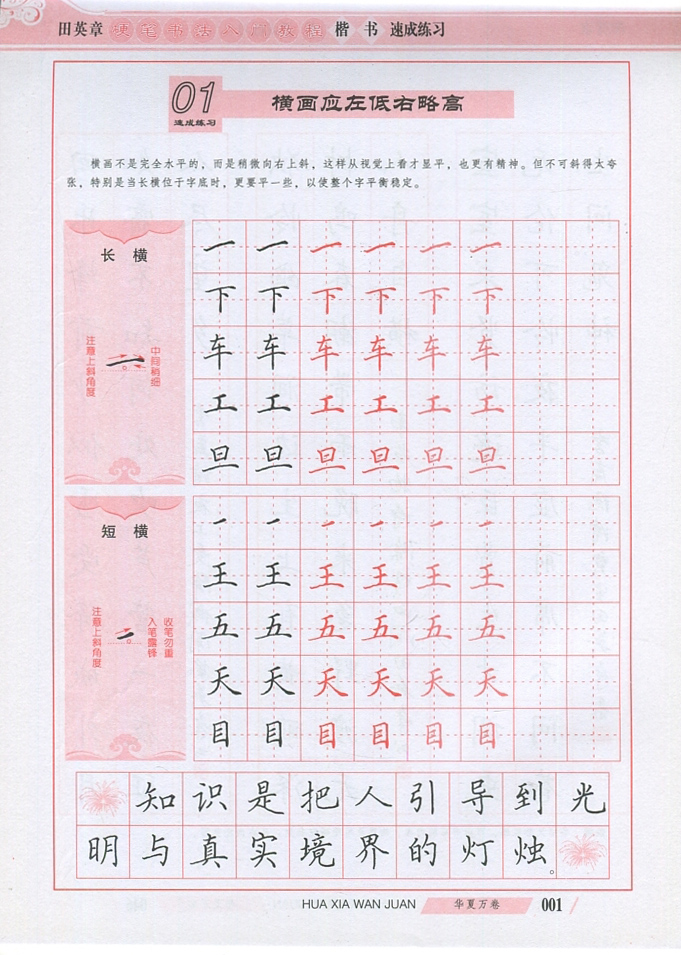 田英章 硬笔书法入门教程 楷书 速成练习
01 横画应左低右略高
速成练习
横画不是完全水平的，而是稍微向右上斜，这样从视觉上看才显平，也更有精神。但不可斜得太夸
张，特别是当长横位于字底时，更要平一些，以使整个字平衡稳定。
长横
注意上斜角度
中间稍细
一 一 一 一 一 一
下 下 下 下 下 下
车 车 车 车 车 车
工 工 工 工 工 工
旦 旦 旦 旦 旦 旦
短横
注意上斜角度
入笔露锋
收笔勿重
一 一 一 一 一 一
王 王 王 王 王 王
五 五 五 五 五 五
天 天 天 天 天 天
目 目 目 目 目 目
知识是把人引导到光
明与真实境界的灯烛。
HUA XIA WAN JUAN 华夏万卷 001